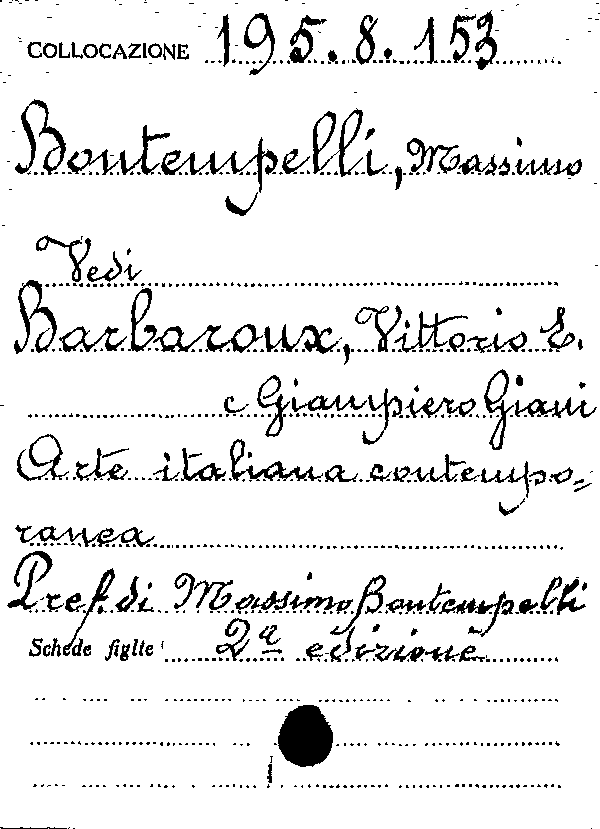 COLLOCAZIONE 195.8.153
Bontempelli, Massimo
Vedi
Barbaroux, Vittorio E.
e Giampiero Giani
Arte italiana contempo=
ranea
Pref. di Massimo Bontempelli
Schede figlie 2ª edizione